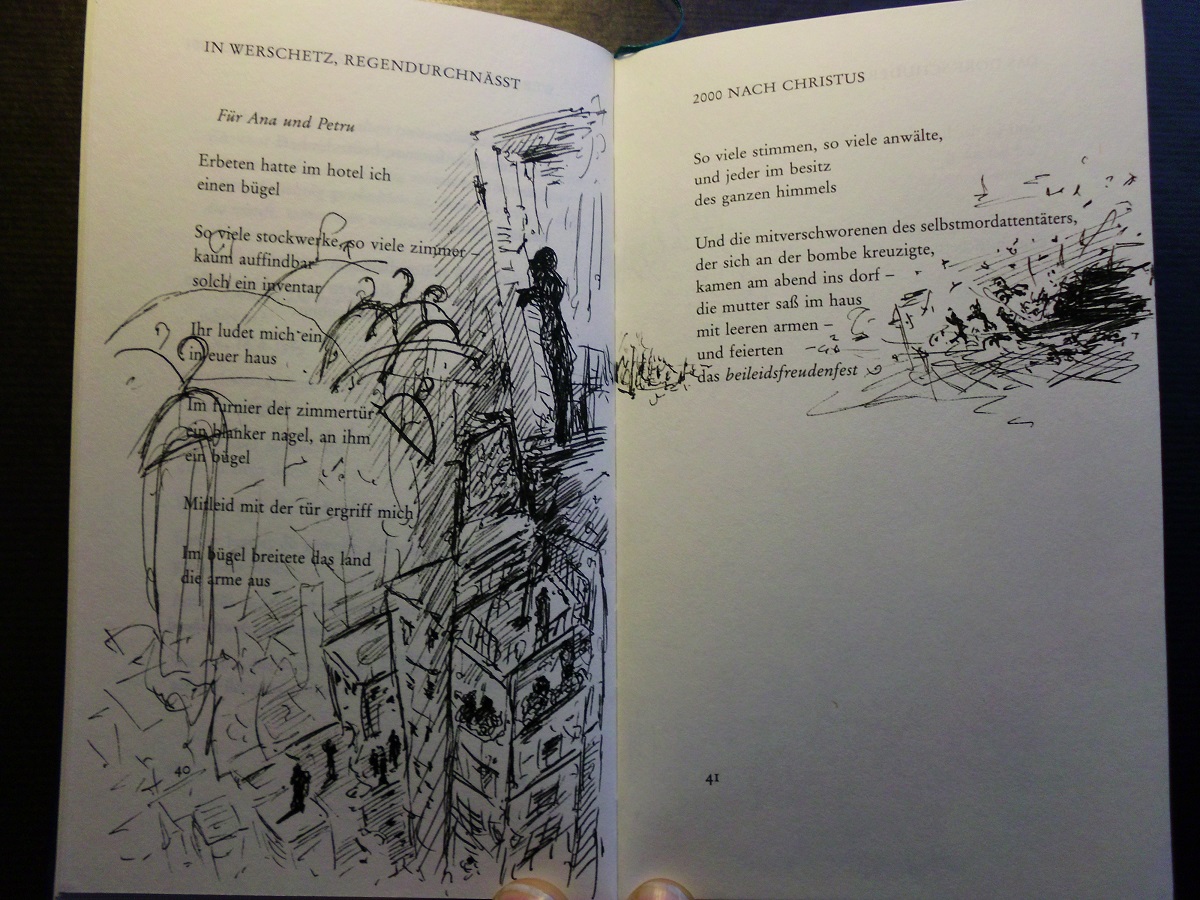 IN WERSCHETZ, REGENDURCHNÄSST
Für Ana und Petru
Erbeten hatte im hotel ich
einen bügel
So viele stockwerke, so viele zimmer –
kaum auffindbar
solch ein inventar
Ihr ludet mich ein
in euer haus
Im furnier der zimmertür
ein blanker nagel, an ihm
ein bügel
Mitleid mit der tür ergriff mich
Im bügel breitete das land
die arme aus
40
2000 NACH CHRISTUS
So viele stimmen, so viele anwälte,
und jeder im besitz
des ganzen himmels
Und die mitverschworenen des selbstmordattentäters,
der sich an der bombe kreuzigte,
kamen am abend ins dorf –
die mutter saß im haus
mit leeren armen –
und feierten
das beileidsfreudenfest
41